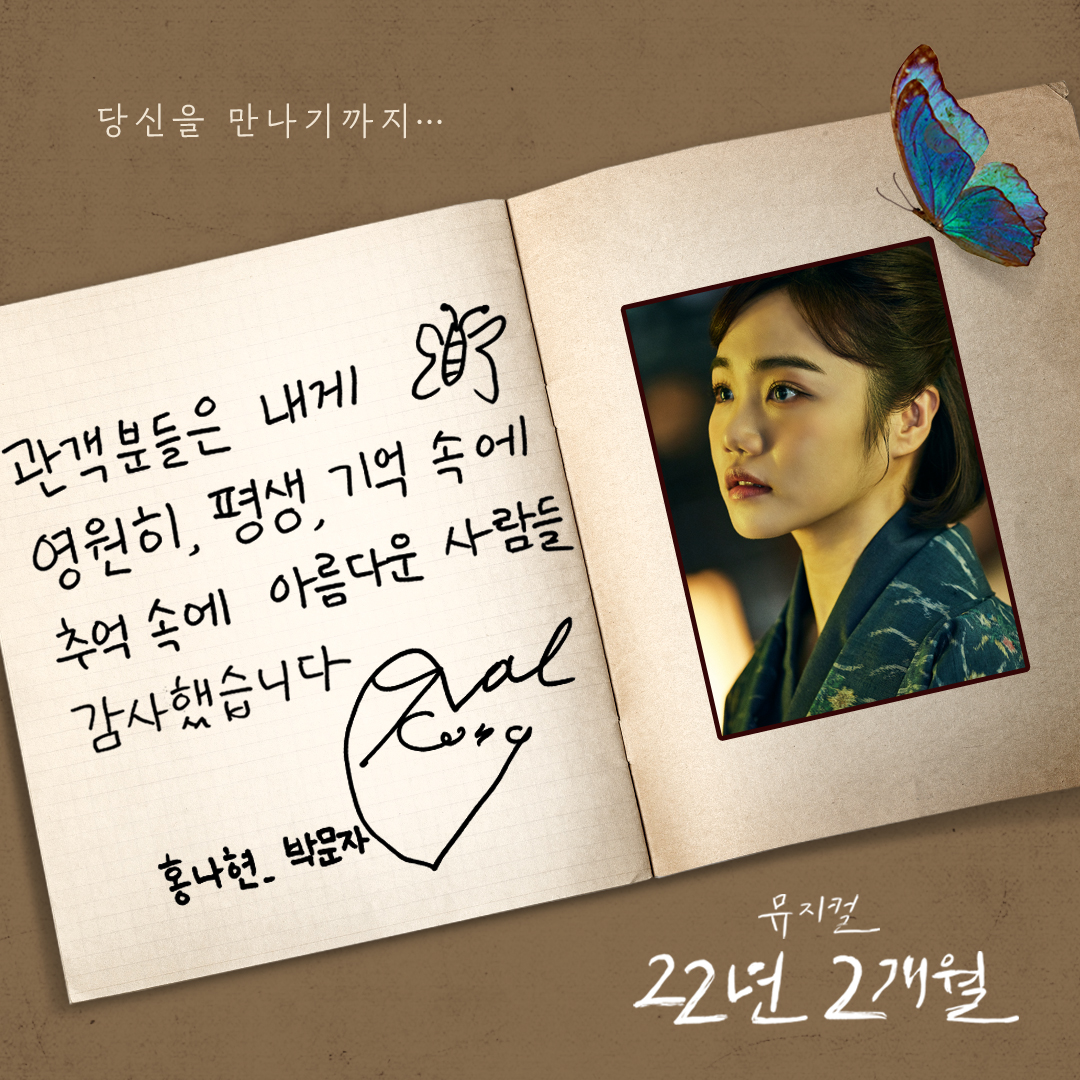 당신을 만나기까지…
관객분들은 내게
영원히, 평생, 기억 속에
추억 속에 아름다운 사람들
감사했습니다
홍나현_ 박문자
뮤지컬
22년 2개월